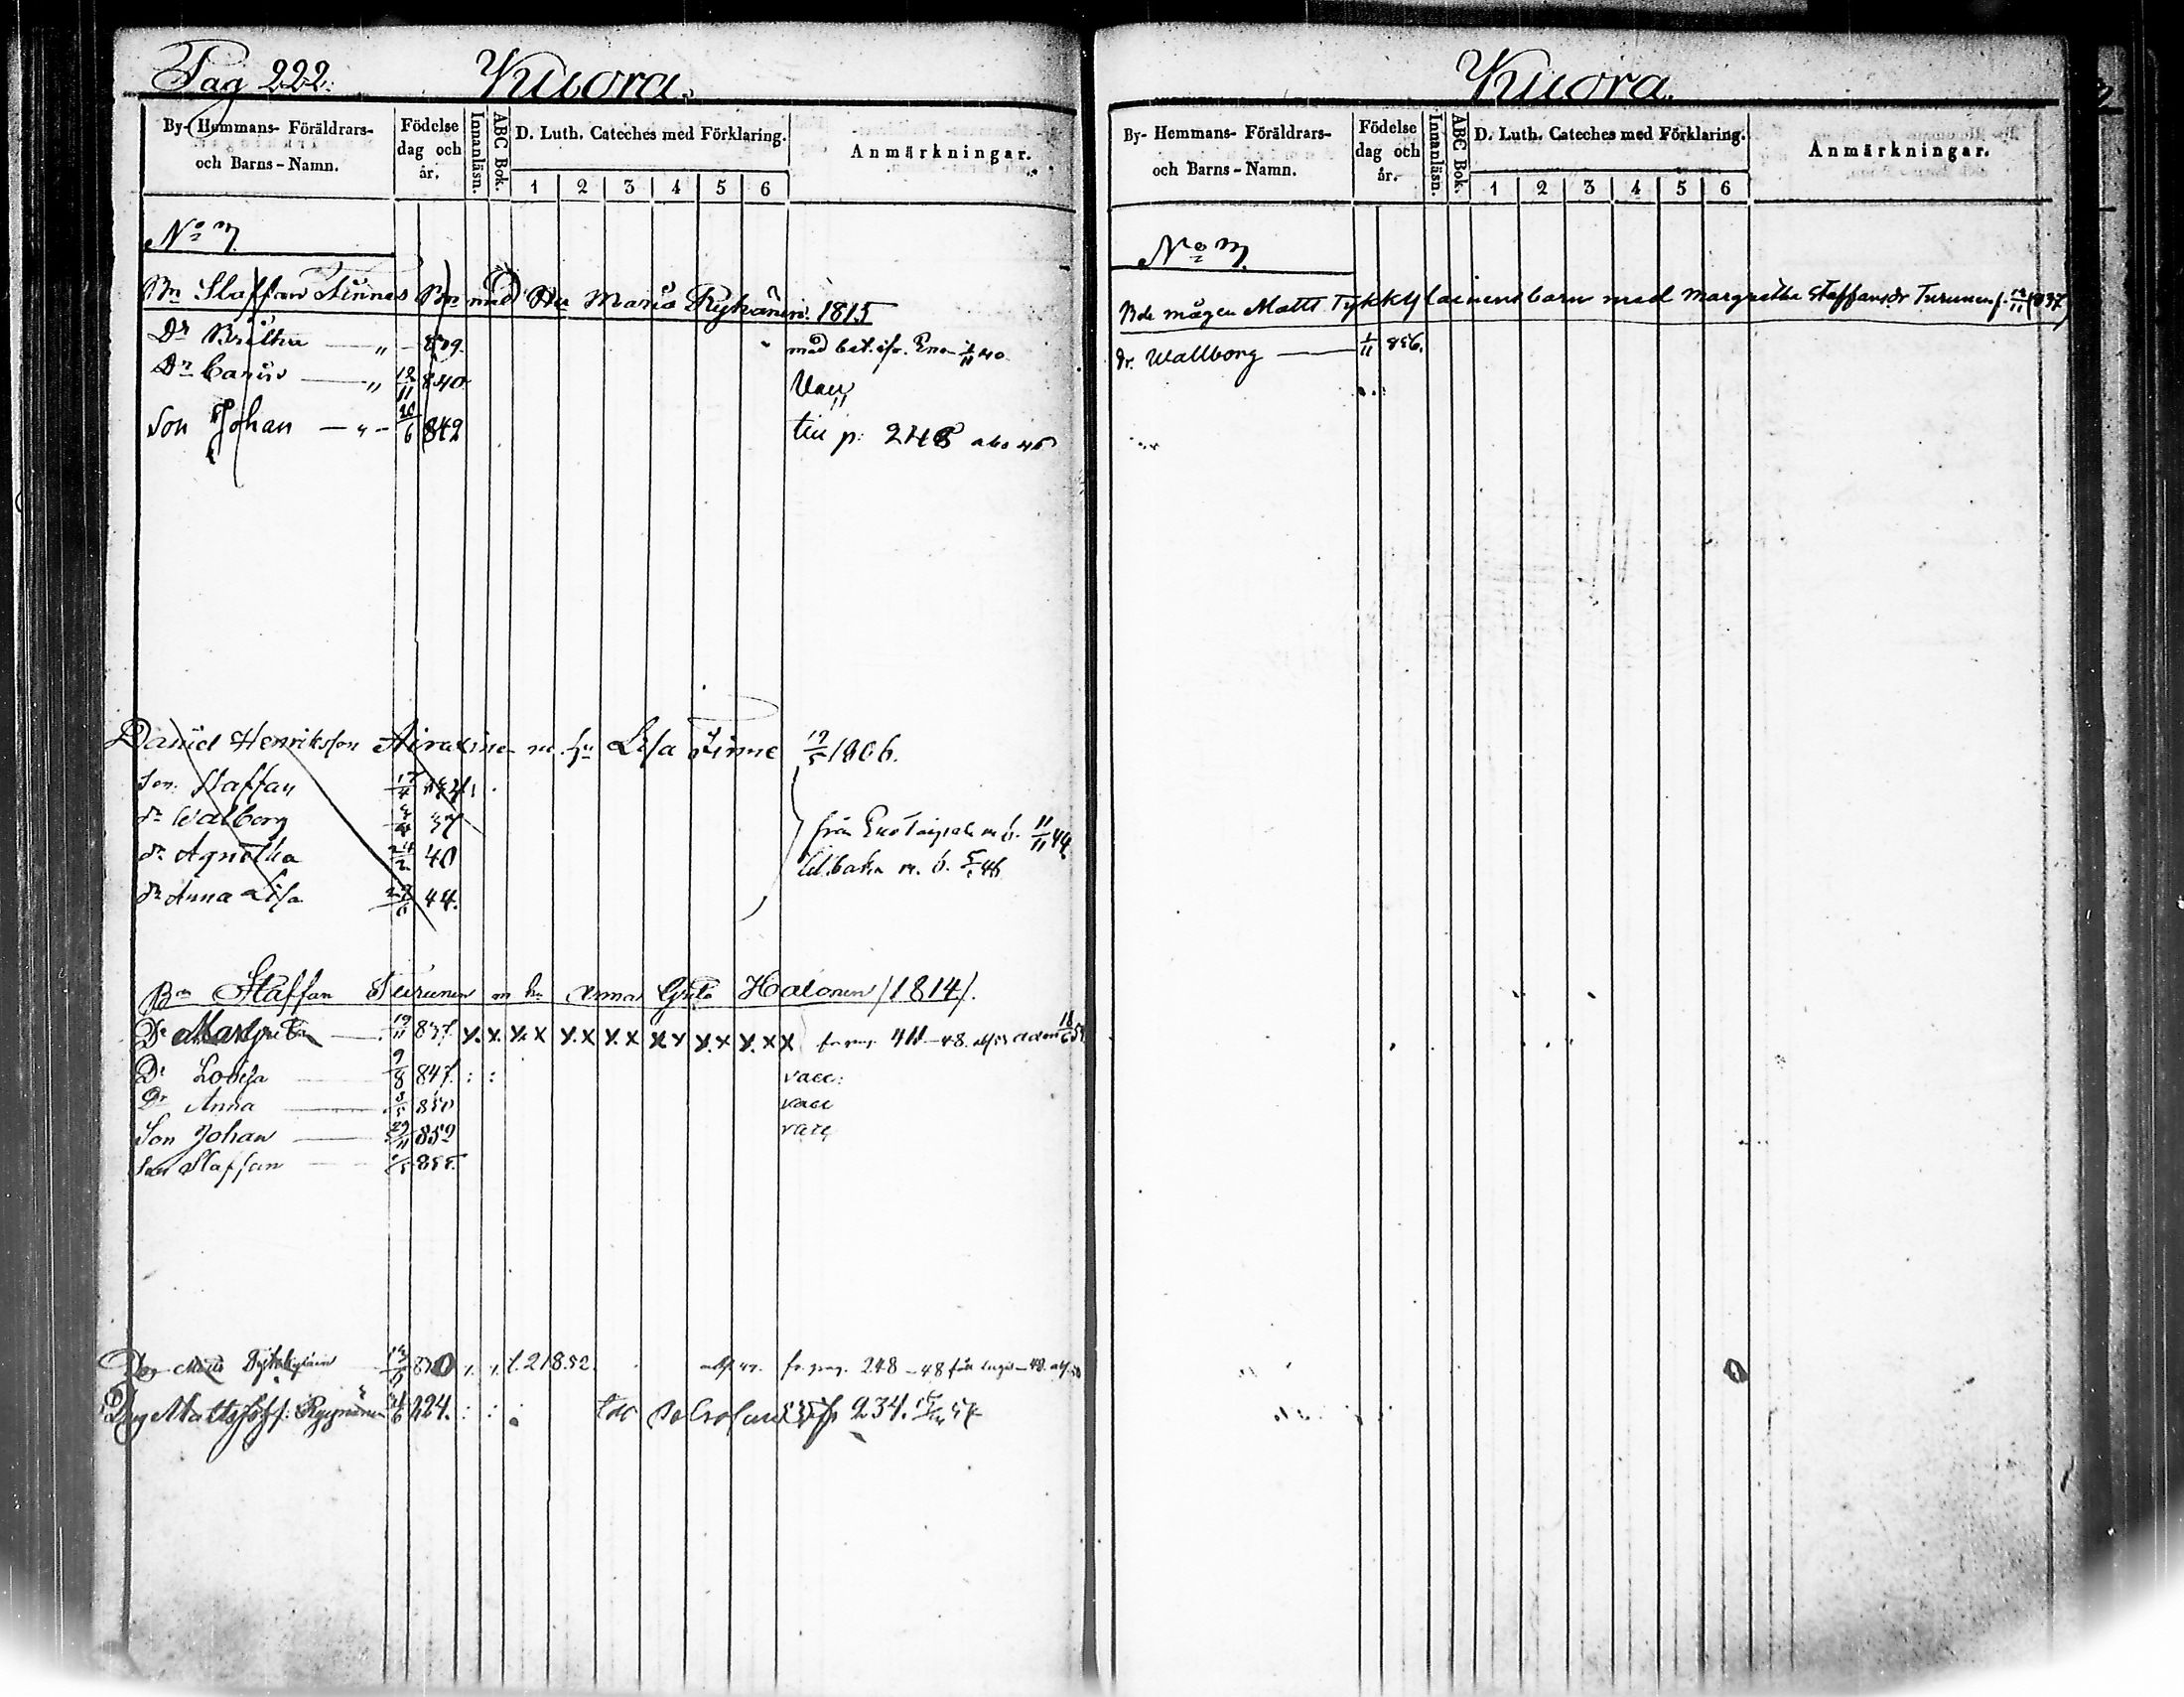 Pag 222.
Kuora.
By- Hemmans- Föräldrars- och Barns-Namn.
Födelse dag och år.
Innanläsn.
ABC Bok.
D. Luth. Cateches med Förklaring.
1 2 3 4 5 6
Anmärkningar.
No 7
Bn Staffan Tinnes Bn med Hu Maria Ryhänen. 1815
Dr Britha — " — 839. med bet. ifr. Eno 40
Dr Carin — " 12/11 840 Vacc
Son Johan — " — 20/6 842 till p: 248
Daniel Henriksson Airaxinen m. hu Lisa Tinne 1806.
Son Staffan 17/4
dr Walborg 37
dr Agnetha 24/2 40 från Eno m. b. 11/11 44
dr Anna Lisa 44. tillbaka m. b. 46
Bn Staffan Turunen m hu Anna Greta Halonen /1814/.
Dr Margreta — 19/11 837. x. x. x x x. x x. x x x x. x x. x x
Dr Lovisa 9/8 847. : : vacc:
Dr Anna 3/5 850 vacc
Son Johan 29/11 852 vacc
Son Staffan 855.
Matts Tykkyläin 830 t. 218.52. fr. pag. 248 — 48
Dräng Matts Ryynänen 6 224. : : 234.
Kuora.
By- Hemmans- Föräldrars- och Barns-Namn.
Födelse dag och år.
Innanläsn.
ABC Bok.
D. Luth. Cateches med Förklaring.
1 2 3 4 5 6
Anmärkningar.
No 7.
Bde mågen Matts Tykkyläinens barn med Margretha Staffansdr Turunen f. 19/11 (837)
dr. Wallborg — 1/11 856.